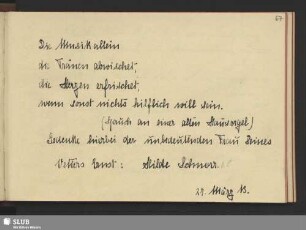 67
Die Musik allein
die Tränen abwischet,
die Herzen erfrischet,
wenn sonst nichts hilflich will sein.
(Spruch an einer alten Hausorgel)
Gedenke hierbei der unbedeutenden Frau Deines
Vetters Ernst: Hilde Schnorr.
29. März 13.
SLUB
Wir führen Wissen.